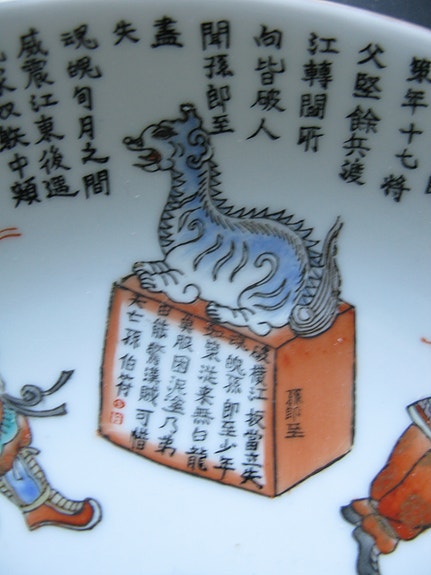 策年十七將
父堅餘兵渡
江轉鬪所
向皆破人
聞孫郎至
盡
失
魂魄旬月之間
威震江東後遇
中頰
破橫江坂當立失
魂魄孫郎至少年
如策從來無白龍
魚服困泥塗乃弟
由能驚漢賊可惜
大亡孫伯符
孫郎至